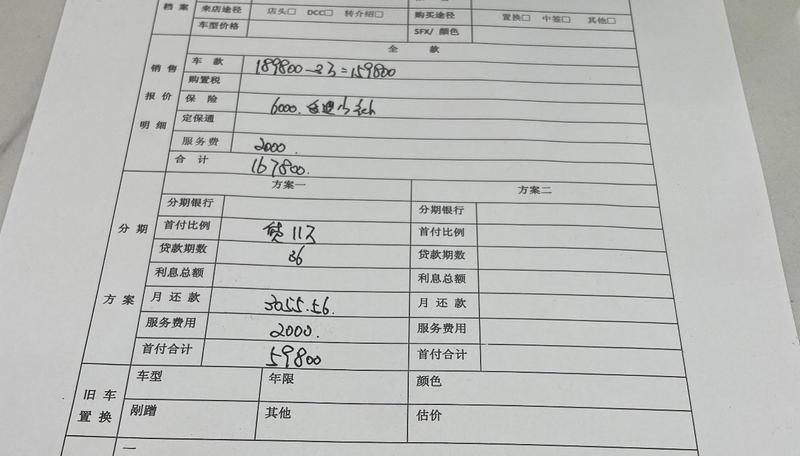 档 案 来店途径 店头□ DCC□ 转介绍□ 购买途径 置换□ 中签□ 其他□
车型价格 SFX/ 颜色
全 款
销 售 报 价 明 细
车 款 189800-3万=159800
购置税
保 险 6000.
定保通
服务费 2000.
合 计 167800.
分 期 方 案
方案一 方案二
分期银行 分期银行
首付比例 贷11万 首付比例
贷款期数 36 贷款期数
利息总额 利息总额
月 还 款 3055.56. 月 还 款
服务费用 2000. 服务费用
首付合计 59800 首付合计
旧 车 置 换
车型 年限 颜色
剐蹭 其他 估价